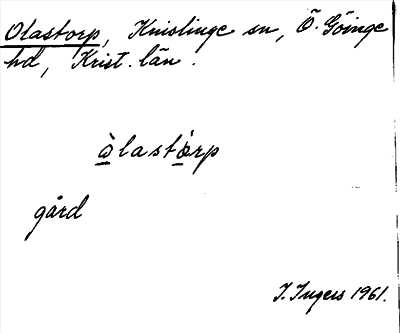 Olastorp, Knislinge sn, Ö. Göinge
hd, Krist. län.
òlastòrp
gård
I. Ingers 1961.